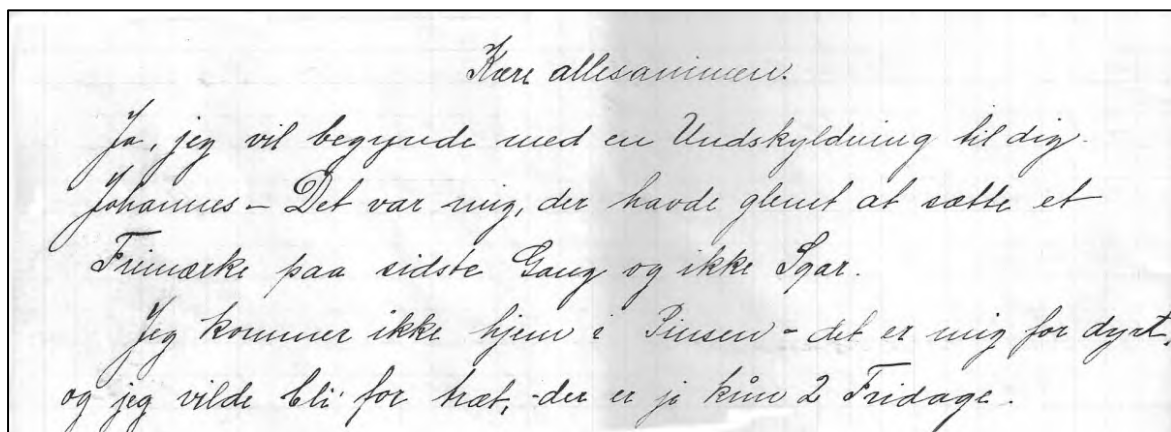 Kære allesammen.
Ja, jeg vil begynde med en Undskyldning til dig.
Johannes – Det var mig, der havde glemt at sætte et
Frimærke paa sidste Gang og ikke Spar.
Jeg kommer ikke hjem i Pinsen – det er mig for dyrt,
og jeg vilde bli' for træt, der er jo kun 2 Fridage.